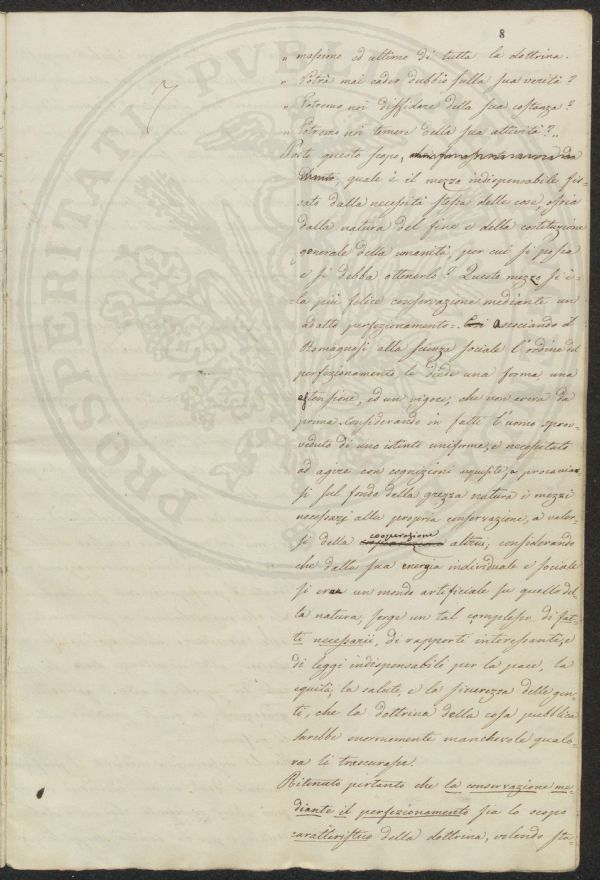 8
„ massimo ed ultimo di tutta la dottrina.
„ Potrà mai cader dubbio sulla sua verità?
„ Potremo noi diffidare della sua costanza?
„ Potremo noi temere della sua attività?„
Posto questo scopo,
quale è il mezzo indispensabile fis-
sato dalla necessità stessa delle cose, ossia
dalla natura del fine e della costituzione
generale della umanità, per cui si possa
e si debba ottenerlo? Questo mezzo si è
la più felice conservazione mediante un
adatto perfezionamento. Associando il
Romagnosi alla scienza sociale l'ordine del
perfezionamento le diede una forma, una
estensione, ed un vigore, che non aveva da
prima. Considerando in fatti l'uomo sprov-
veduto di uno istinto uniforme, e necessitato
ad agire con cognizioni acquisite, a procacciar
si sul fondo della grezza natura i mezzi
necessarj alla propria conservazione, a valer-
si della cooperazione altrui; considerando
che dalla sua energia individuale e sociale
si crea un mondo artificiale su quello del-
la natura, sorge un tal complesso di fat-
ti necessarii, di rapporti interessanti, e
di leggi indispensabile per la pace, la
equità, la salute, e la sicurezza delle gen-
ti, che la dottrina della cosa pubblica
sarebbe enormemente manchevole qualo-
ra li trascurasse.
Ritenuto pertanto che la conservazione me-
diante il perfezionamento sia lo scopo
caratteristico della dottrina, volendo sta-
PROSPERITATI PVBLI